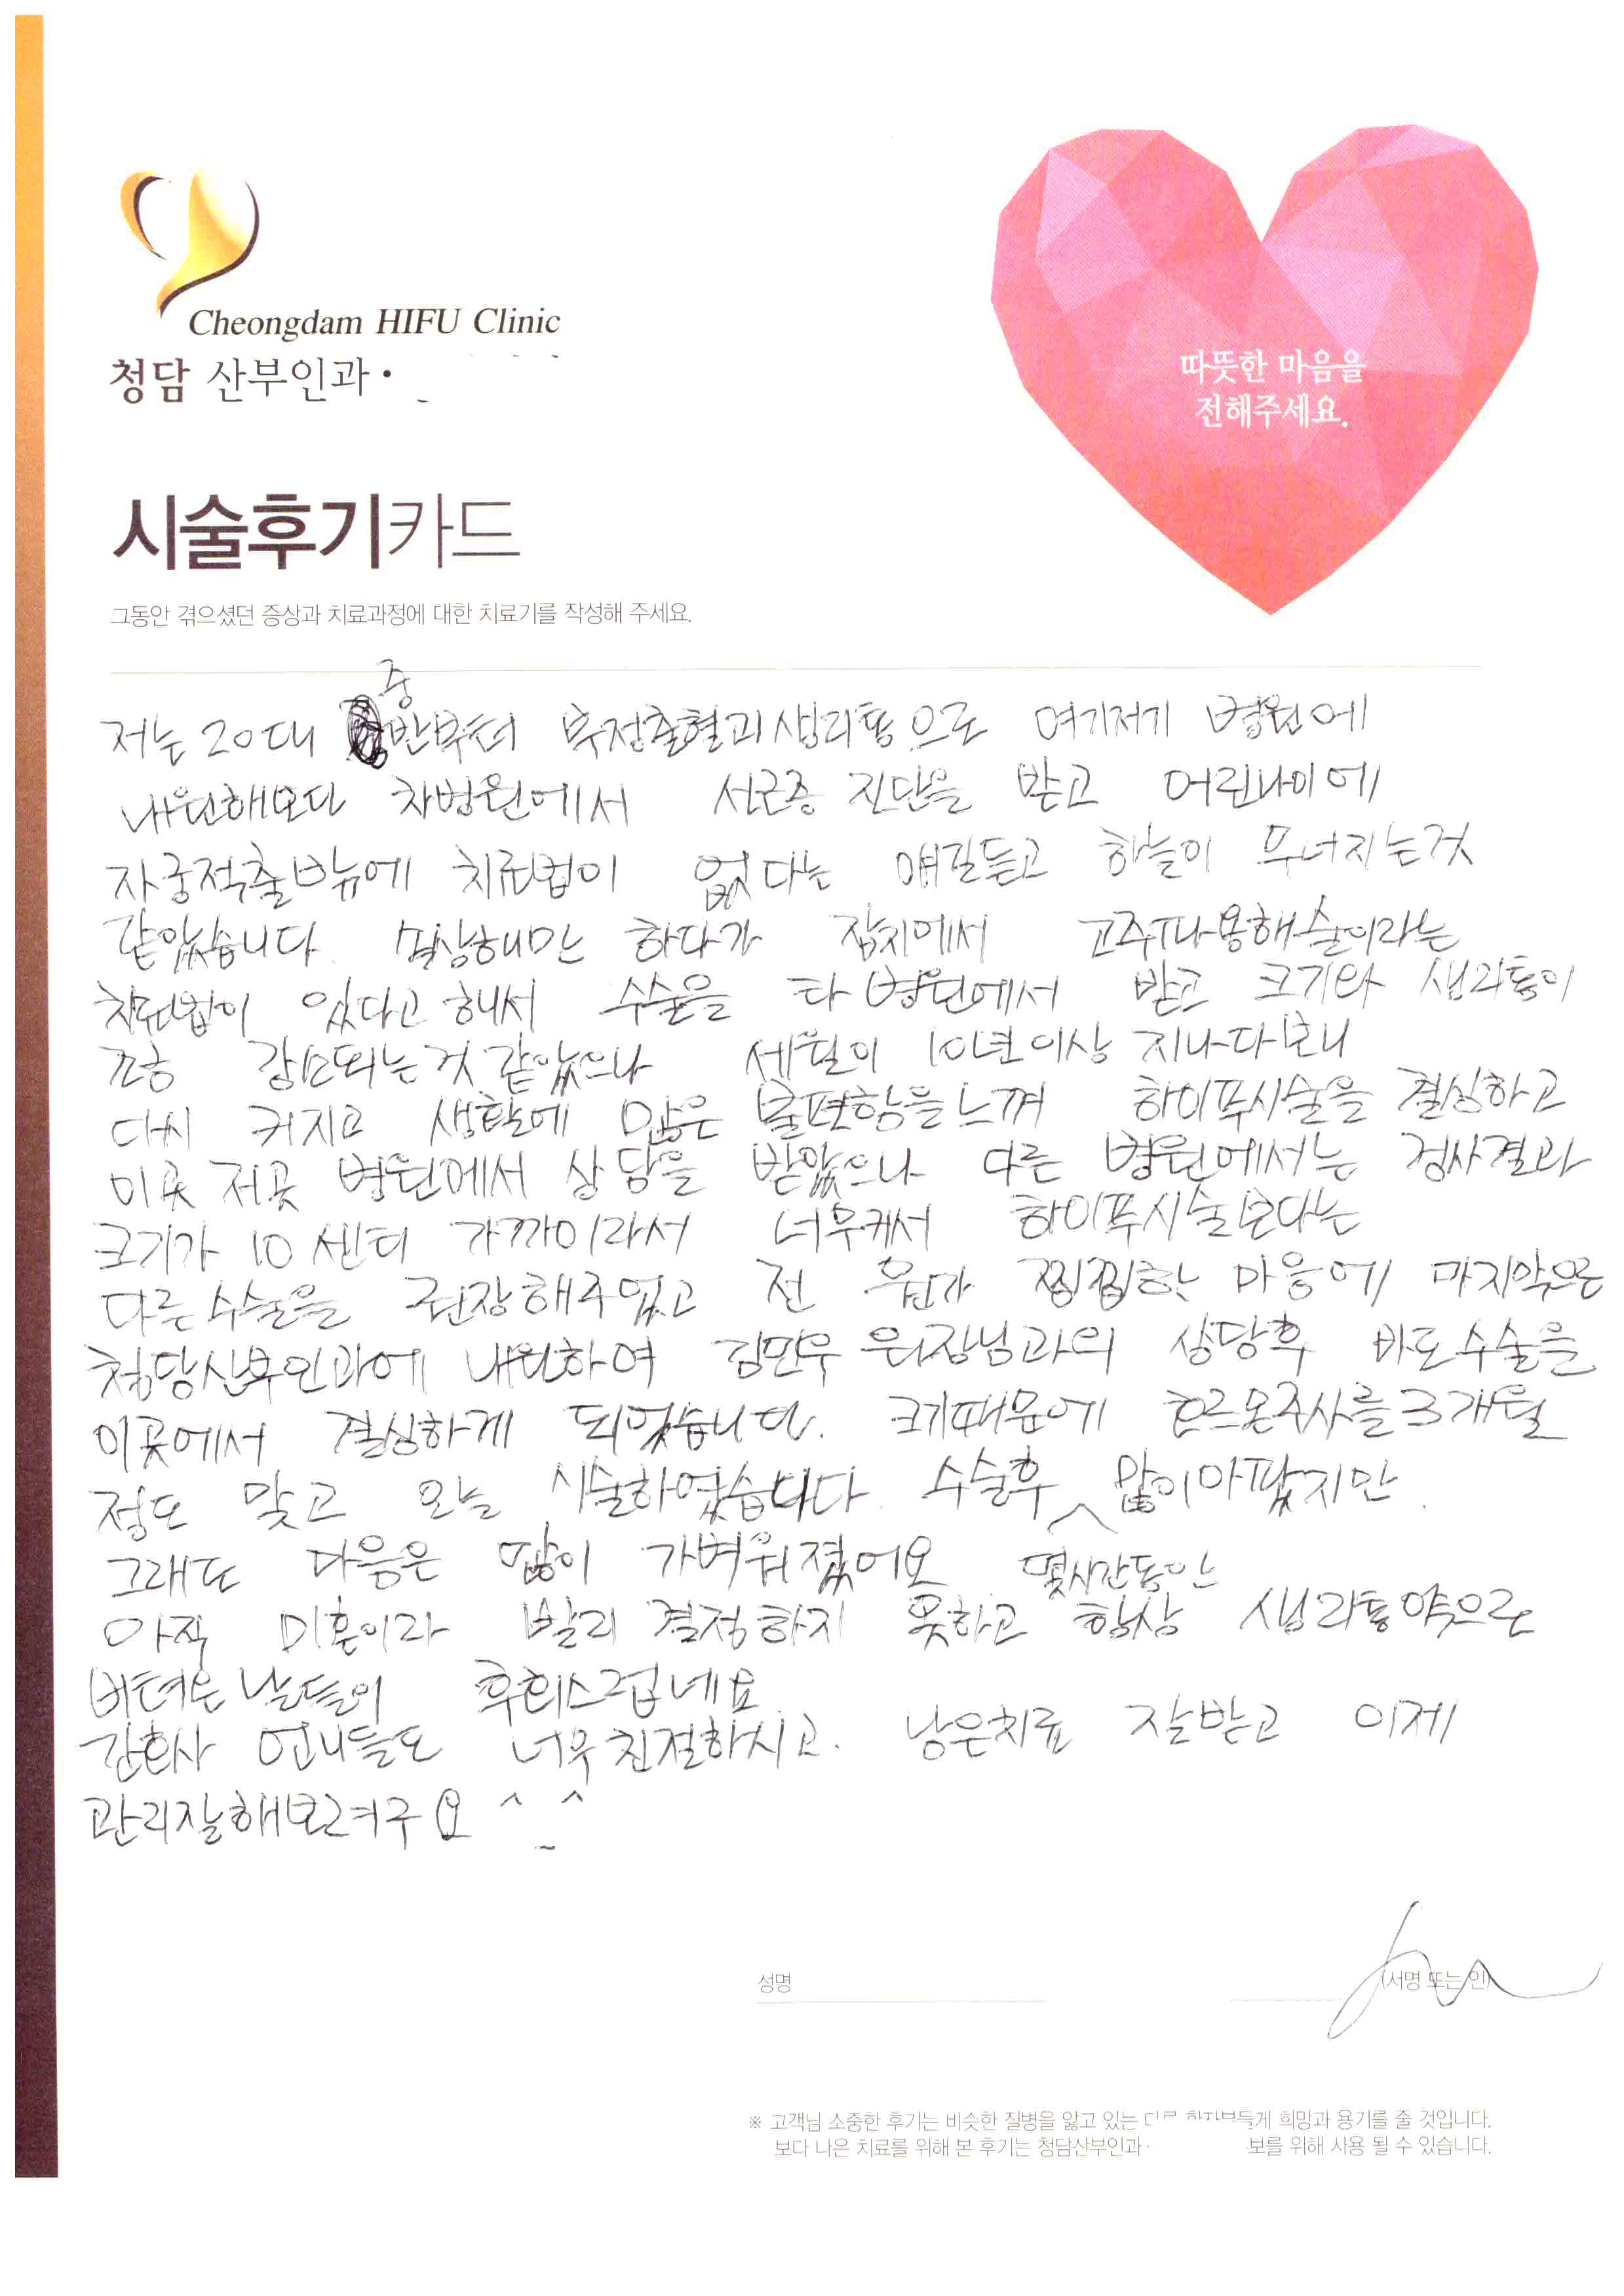 Cheongdam HIFU Clinic
청담 산부인과·
따뜻한 마음을
전해주세요.
시술후기카드
그동안 겪으셨던 증상과 치료과정에 대한 치료기를 작성해 주세요.
저는 20대 중반부터 부정출혈과 생리통으로 여기저기 병원에
내원해보다 차병원에서 선근증 진단을 받고 어린나이에
자궁적출밖에 치료법이 없다는 얘길듣고 하늘이 무너지는것
같았습니다. 속상해만 하다가 잡지에서 고주파용해술이라는
치료법이 있다고 해서 수술을 타 병원에서 받고 크기와 생리통이
조금 감소되는것 같았으나 세월이 10년이상 지나다보니
다시 커지고 생활에 많은 불편함을 느껴 하이푸시술을 결심하고
이곳 저곳 병원에서 상담을 받았으나 다른 병원에서는 검사결과
크기가 10 센티 가까이라서 너무커서 하이푸시술보다는
다른수술을 권장해주었고 전 뭔가 찜찜한 마음에 마지막으로
청담산부인과에 내원하여 김민우 원장님과의 상담후 바로수술을
이곳에서 결심하게 되었습니다. 크기때문에 호르몬주사를 3개월
정도 맞고 오늘 시술하였습니다. 수술후 몇시간동안 많이아팠지만
그래도 마음은 많이 가벼워졌어요
아직 미혼이라 빨리 결정하지 못하고 항상 생리통약으로
버텨온 날들이 후회스럽네요
간호사 언니들도 너무친절하시고. 남은치료 잘받고 이제
관리잘해보려구요 ^_^
성명
(서명 또는 인)
※ 고객님 소중한 후기는 비슷한 질병을 앓고 있는 희망과 용기를 줄 것입니다.
보다 나은 치료를 위해 본 후기는 청담산부인과· 보를 위해 사용 될 수 있습니다.